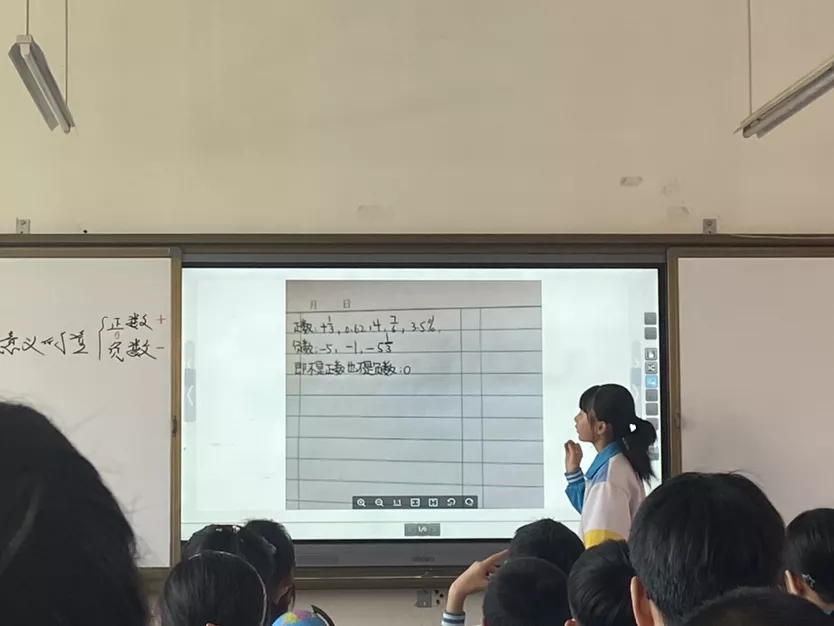 意义的量
正数 +
0
负数 -
月 日
正数:+⅓, 0.62, 4, 7/6, 3.5%.
负数:-5, -1, -5⅓
即不是正数也不是负数:0
1/6